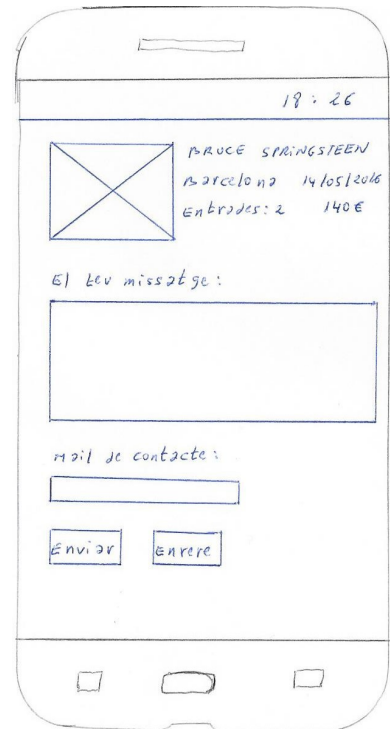 18:26
BRUCE SPRINGSTEEN
Barcelona 14/05/2016
Entrades: 2 140€
El teu missatge:
Mail de contacte:
Enviar Enrere